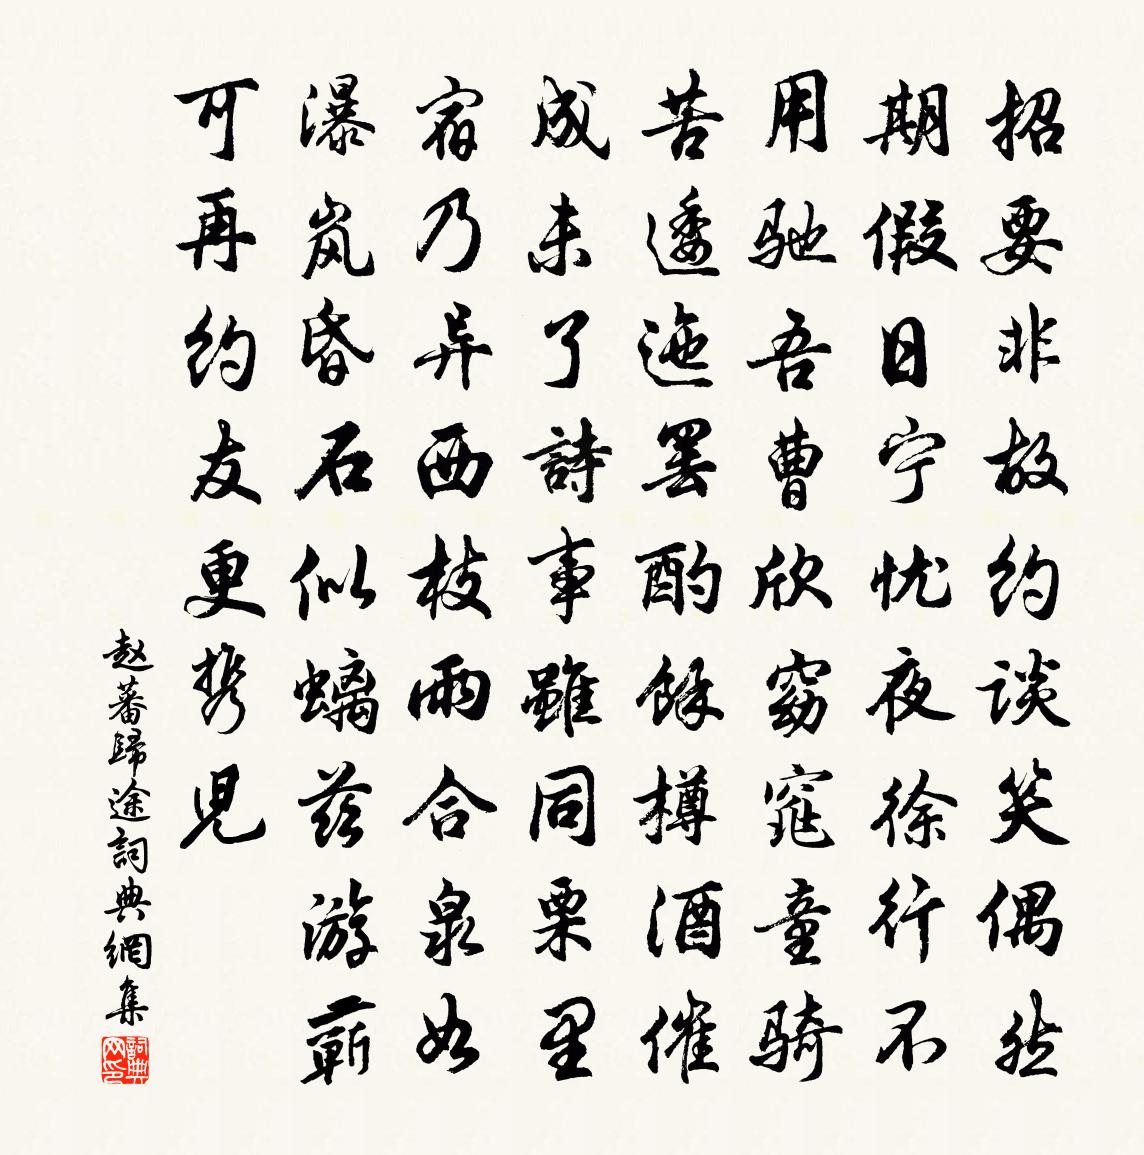 招要非故约谈笑偶然
期假日宁忧夜徐行不
用驰吾曹欣窈窕童骑
苦逶迤罢酌馀樽酒催
成未了詩事雖同栗里
宿乃异西枝雨合泉如
瀑岚昏石似螭兹游蕲
可再约友更携児
赵蕃歸途詞典網集
詞典网印